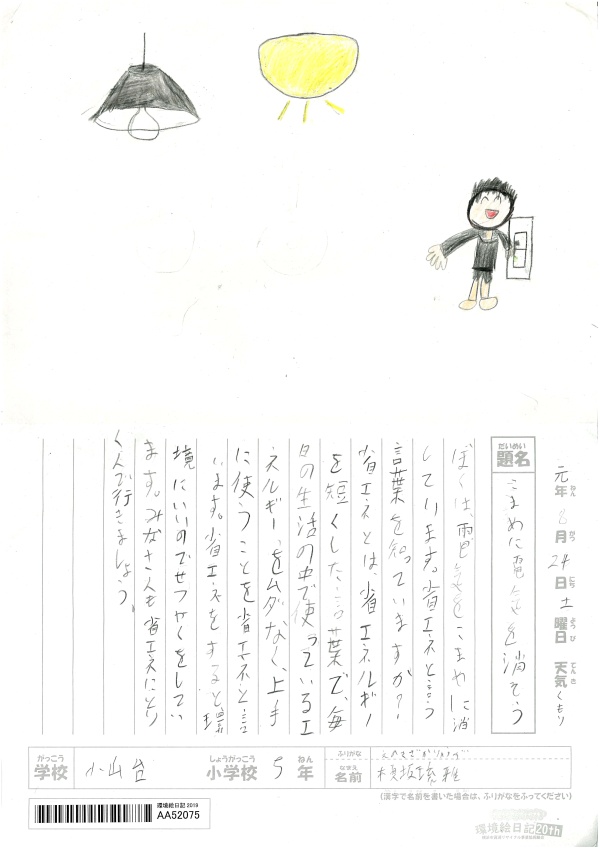 元年8月24日土曜日 天気くもり
ねん がつ にち ようび てんき
だいめい
題名 こまめに電気を消そう
ぼくは、電気をこまめに消
しています。省エネと言う
言葉を知っていますか?
省エネとは、省エネルギー
を短くした言葉で、毎
日の生活の中で使っているエ
ネルギーをムダなく、上手
に使うことを省エネと言
います。省エネをすると環
境にいいのでせつやくをしてい
ます。みなさんも省エネにとり
くんで行きましょう。
がっこう しょうがっこう ねん
学校 小山台 小学校 5年
ふりがな
なまえ
名前
(漢字で名前を書いた場合は、ふりがなをふってください)
環境絵日記 2019
AA52075
環境絵日記 20th